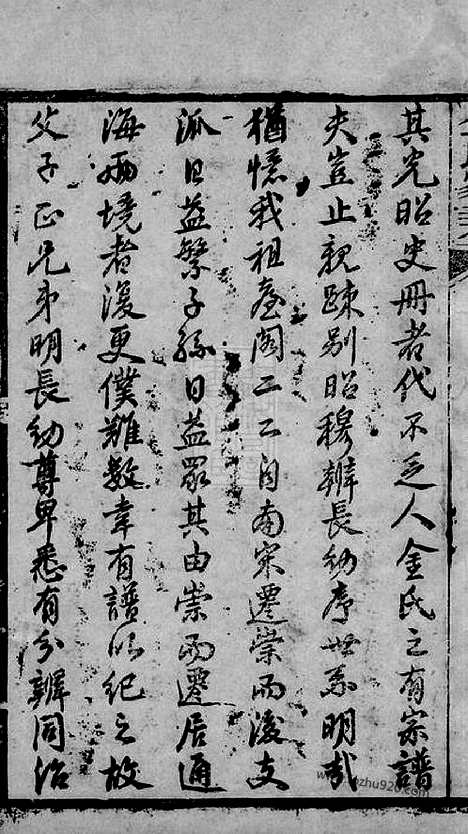 其光昭史冊者代不乏人金氏之有宗譜
夫豈止親踈别昭穆辦長幼序世系明哉
猶憶我祖臺閣二二自南宋遷崇而後支
派日益繁子孫日益眾其由崇而遷居通
海兩境者湲更僕難數幸有譜以紀之故
父子正兄弟明長幼尊卑悉有分辦同治